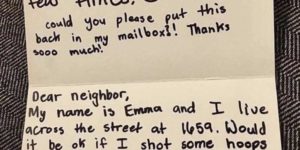 few times.
could you please put this
back in my mailbox!! Thanks
sooo much!
Dear neighbor,
My name is Emma and I live
across the street at 1659. Would
it be ok if I shot some hoops